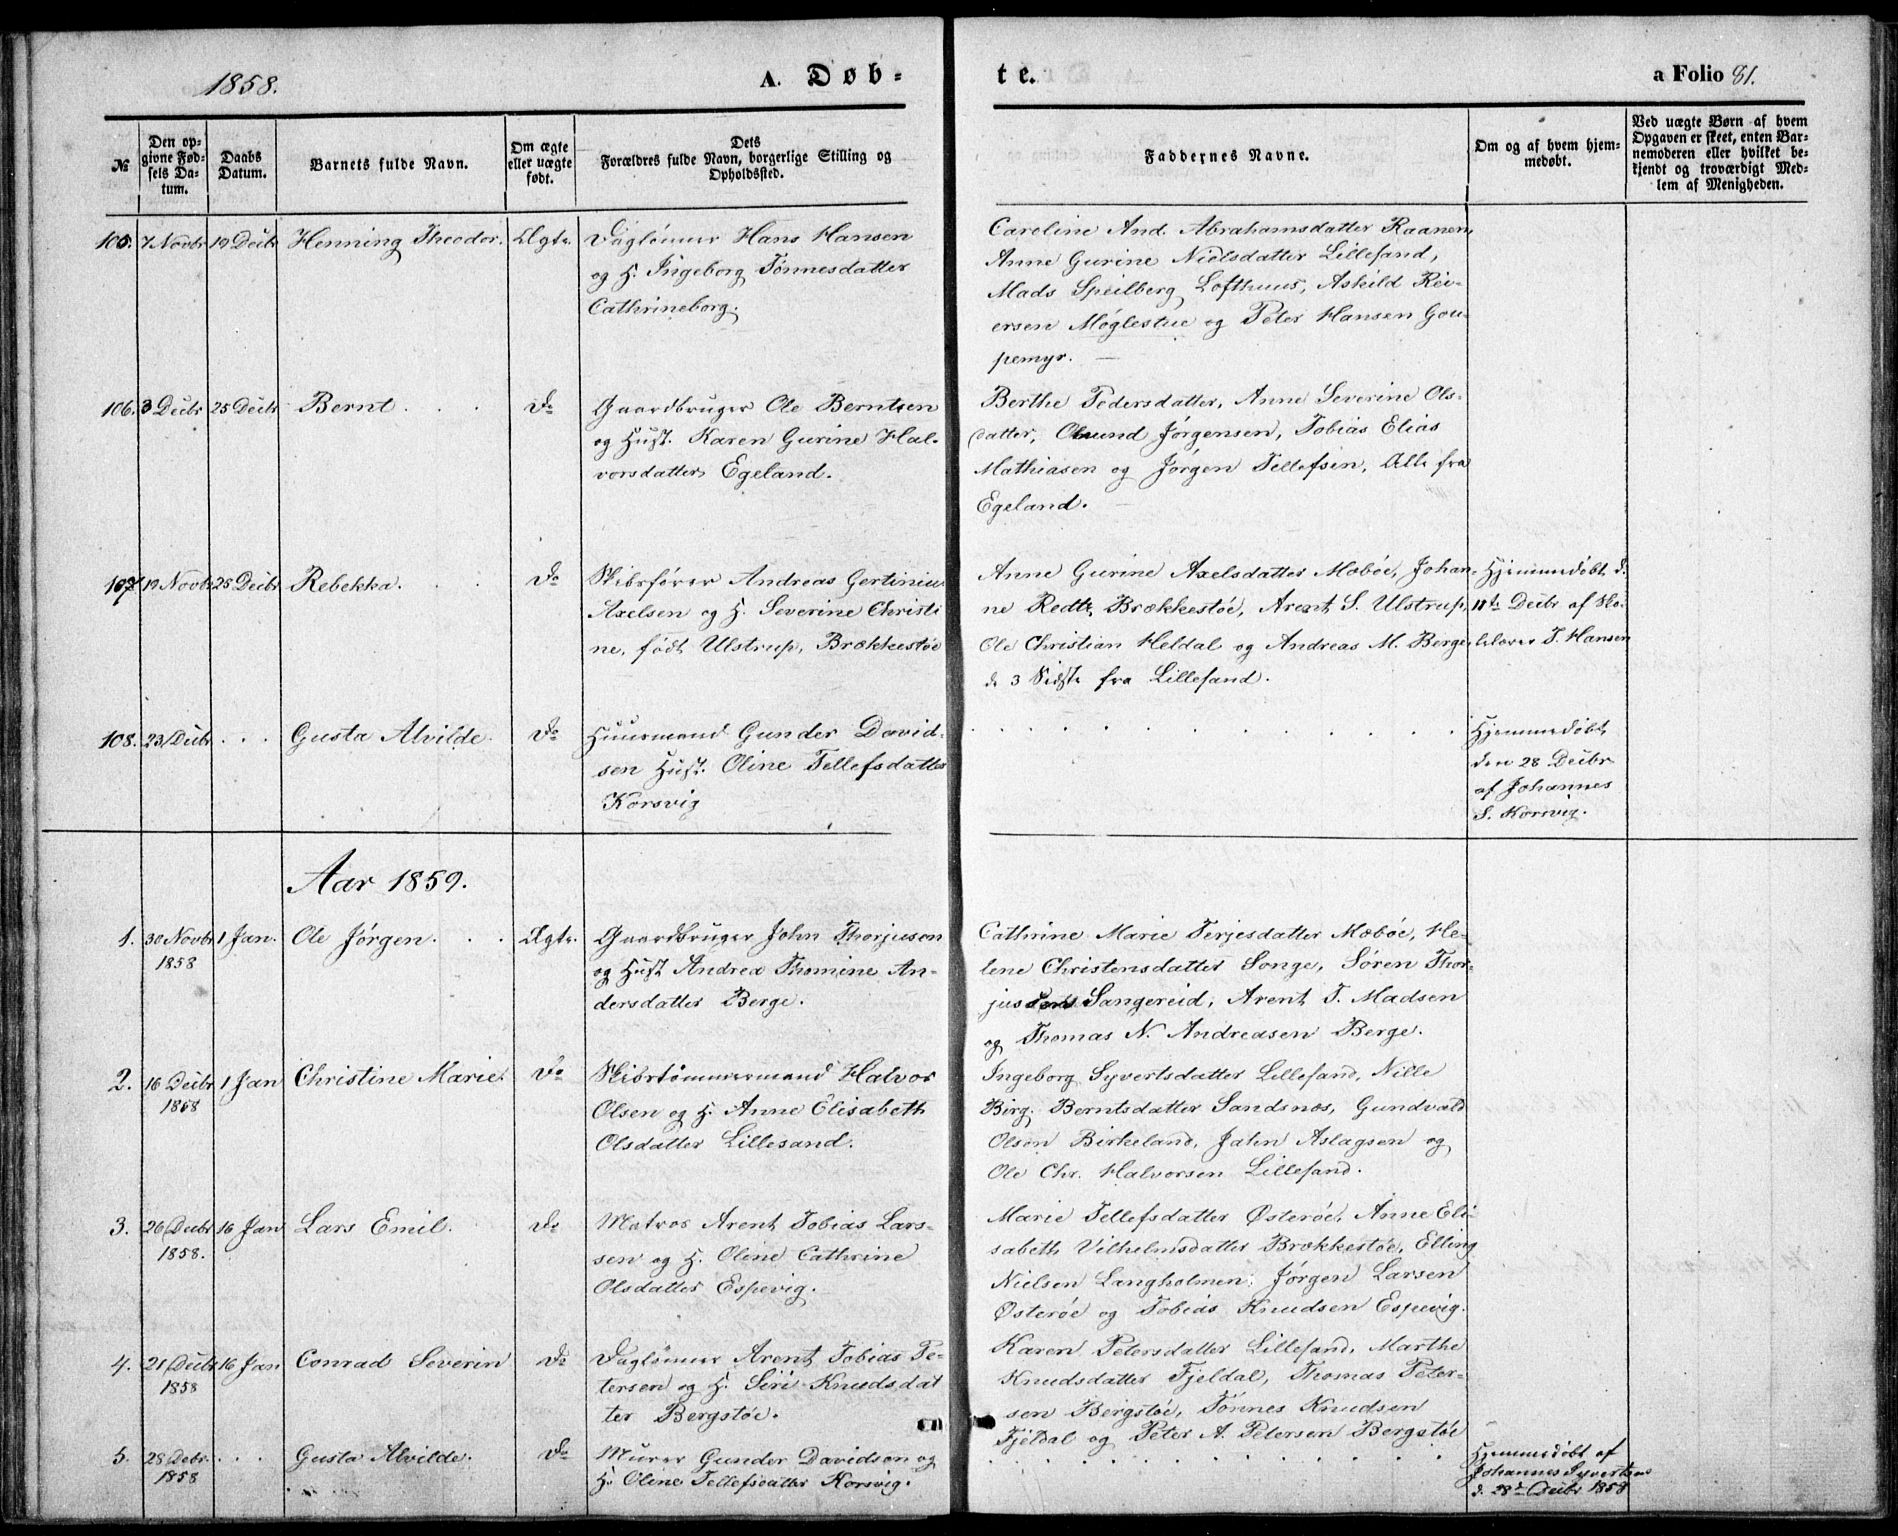 1858.
A. Døb-
te.
a Folio 81.
№
Den op-
givne Fød-
sels Da-
tum.
Daabs
Datum.
Barnets fulde Navn.
Om ægte
eller uægte
født.
Dets
Forældres fulde Navn, borgerlige Stilling og
Opholdssted.
Faddernes Navne.
Om og af hvem hjem-
medøbt.
Ved uægte Børn af hvem
Opgaven er skeet, enten Bar-
nemoderen eller hvilket be-
kjendt og troværdigt Med-
lem af Menigheden.
105. 7 Novbr 19 Decbr Henning Theodor. Ægte.
Daglønner Hans Hansen
og H. Ingeborg Tønnesdatter
Cathrineborg.
Caroline And. Abrahamsdatter Raanen,
Anne Gurine Nielsdatter Lillesand,
Mads Speilberg Lofthuus, Askild Rei-
ersen Møglestue og Peter Hansen Gou-
pemyr.
106. 3 Decbr 25 Decbr Bernt. Do
Gaardbruger Ole Berntsen
og Hust. Karen Gurine Hal-
vorsdatter Egeland.
Berthe Pedersdatter, Anne Severine Ols-
datter, Omund Jørgensen, Tobias Elias
Mathiasen og Jørgen Tellefsen, Alle fra
Egeland.
107. 19 Novbr 28 Decbr Rebekka. Do
Skibsfører Andreas Gertinius
Axelsen og H. Severine Christi
ne, født Ulstrup, Brækkestøe
Anne Gurine Axelsdatter Mæbøe, Johan-
ne Redtz Brækkestøe, Arent S. Ulstrup,
Ole Christian Heldal og Andreas M. Berge,
de 3 Sidste fra Lillesand.
Hjemmedøbt d.
11te Decbr af Sko-
lelærer T. Hansen
108. 23/Decbr Gusta Alvilde. Do
Huusmand Gunder David-
sen Hust. Oline Tellefsdatter
Korsvig
Hjemmedøbt
den 28 Decbr
af Johannes
S. Korsvig.
Aar 1859.
1. 30 Novbr 1 Jan. Ole Jørgen. Ægte.
1858
Gaardbruger John Thorjuson
og Hust Andrea Thomine An-
dersdatter Berge.
Cathrine Marie Terjesdatter Mæbøe, He-
lene Christensdatter Songe, Søren Thor-
jusens Sangereid, Arent T. Madsen
og Thomas N. Andreasen Berge.
2. 16 Decbr 1 Jan Christine Marie. Do
1858
Skibstømmermand Halvor
Olsen og H. Anne Elisabeth
Olsdatter Lillesand.
Ingeborg Syvertsdatter Lillesand, Nille
Birg. Berntsdatter Sandsnæs, Gundvald
Olsen Birkeland, Jahn Aslagsen og
Ole Chr. Halvorsen Lillesand.
3. 26 Decbr 16 Jan Lars Emil. Do
1858.
Matros Arent Tobias Lars-
sen og H. Olene Cathrine
Olsdatter Espevig.
Marie Tellefsdatter Østerøe, Anne Eli-
sabeth Vilhelmsdatter Brækkestøe, Elling
Nielsen Langholmen, Jørgen Larsen
Østerøe og Tobias Knudsen Espevig.
4. 21 Decbr 16 Jan Conrad Severin Do
1858
Daglønner Arent Tobias Pe-
tersen og H. Siri Knudsdat
ter Bergstøe.
Karen Petersdatter Lillesand, Marthe
Knudsdatter Fjeldal, Thomas Peter-
sen Bergstøe, Tønnes Knudsen
Fjeldal og Peter A. Petersen Bergstøe
5. 28 Decbr Gusta Alvilde. Do
1858
Murer Gunder Davidsen og
H. Oline Tellefsdatter Korsvig.
Hjemmedøbt af
Johannes Syvertsen
d. 28de Decbr 1858